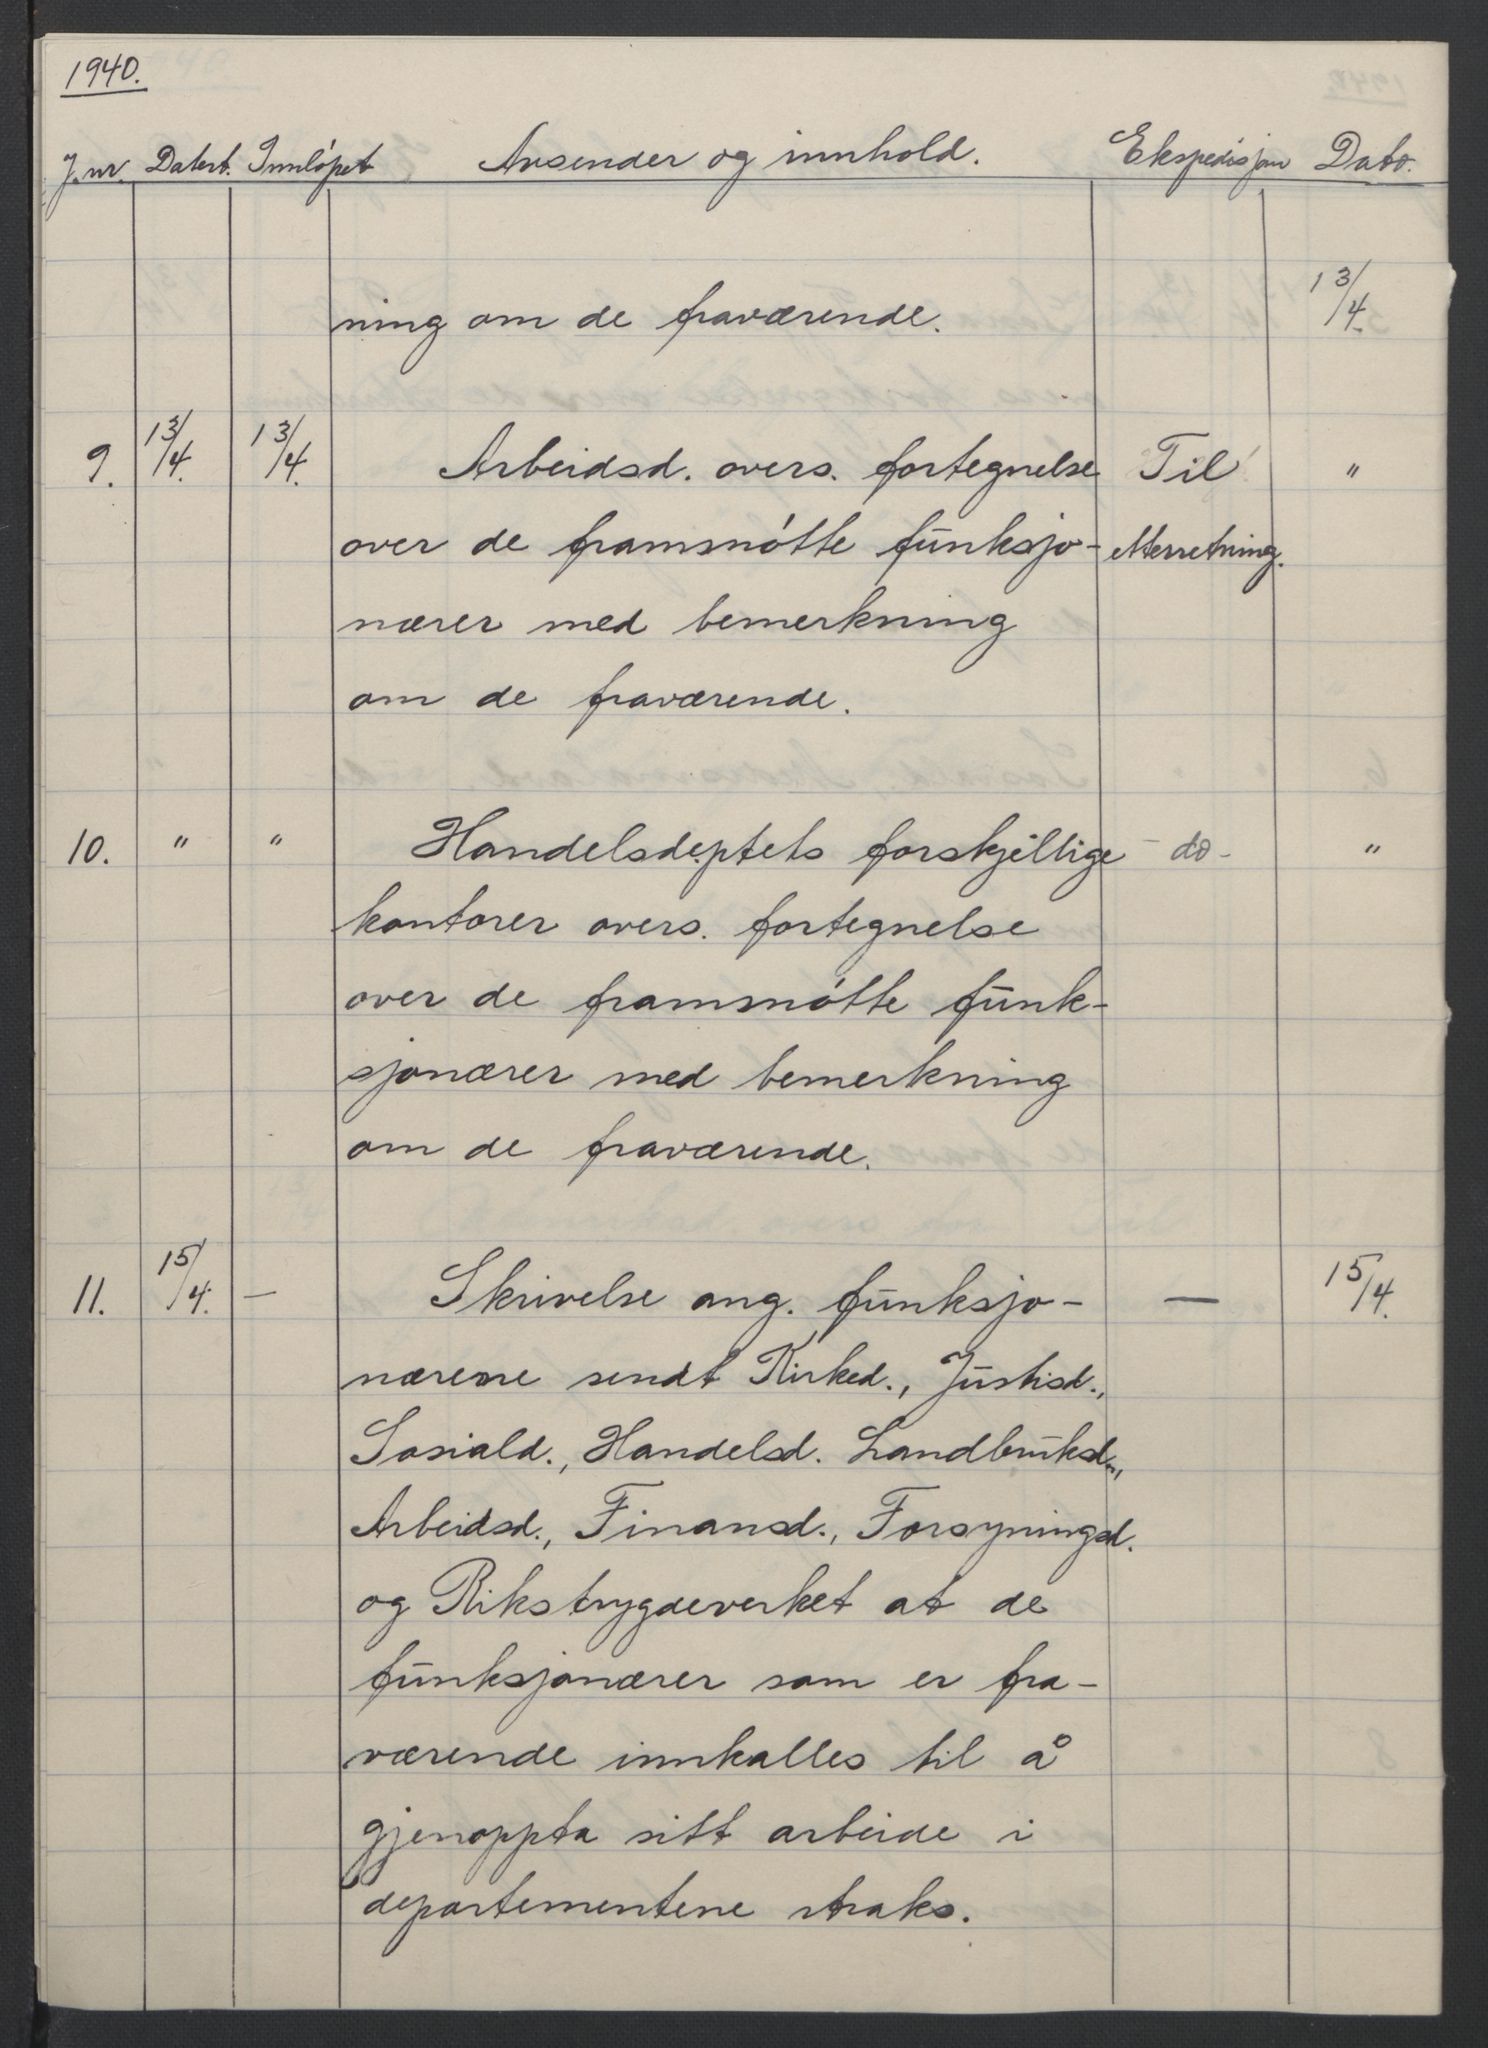 1940.
J.nr. Datert. Innløpet Avsender og innhold. Ekspedisjon Dato.
ning om de fraværende. 13/4.
9. 13/4. 13/4. Arbeidsd. overs. fortegnelse Til "
over de frammøtte funksjo- etterretning.
nærer med bemerkning
om de fraværende.
10. " " Handelsdeptets forskjellige - do - "
kontorer overs. fortegnelse
over de frammøtte funk-
sjonærer med bemerkning
om de fraværende.
11. 15/4. — Skrivelse ang. funksjo- — 15/4.
nærene sendt Kirked., Justisd.,
Sosiald., Handelsd. Landbruksd.,
Arbeidsd., Finansd., Forsyningsd.
og Rikstrygdeverket at de
funksjonærer som er fra-
værende innkalles til å
gjenoppta sitt arbeide i
departementene straks.